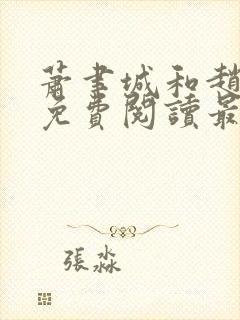 蕭書城和趙
免費閱讀最
張淼